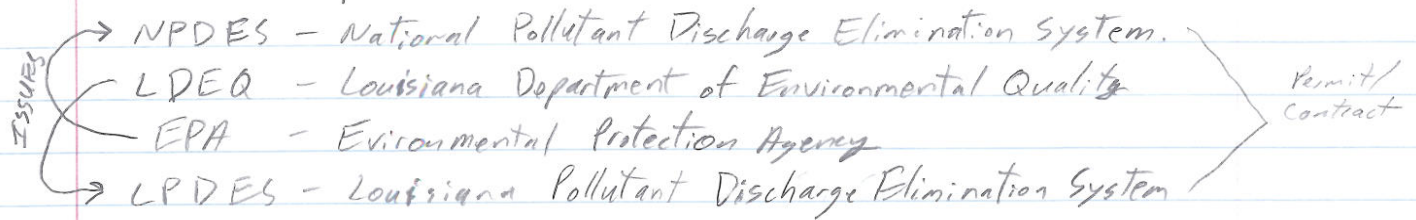 NPDES - National Pollutant Discharge Elimination System.
LDEQ - Louisiana Department of Environmental Quality
EPA - Evironmental Protection Agency
LPDES - Louisiana Pollutant Discharge Elimination System
ISSUES
Permit/
Contract